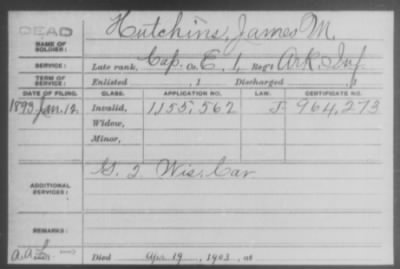 DEAD
NAME OF SOLDIER: Hutchins, James M.
SERVICE: Late rank, Cap. Co. E, 1, Reg't Ark. Inf.
TERM OF SERVICE: Enlisted , 1 Discharged , 1
DATE OF FILING. CLASS. APPLICATION NO. LAW. CERTIFICATE NO.
1893 Jan. 12. Invalid, 1155,562 J. 964,273
Widow,
Minor,
ADDITIONAL SERVICES: G. 2 Wis. Cav
REMARKS:
Died Apr. 19, 1903, at